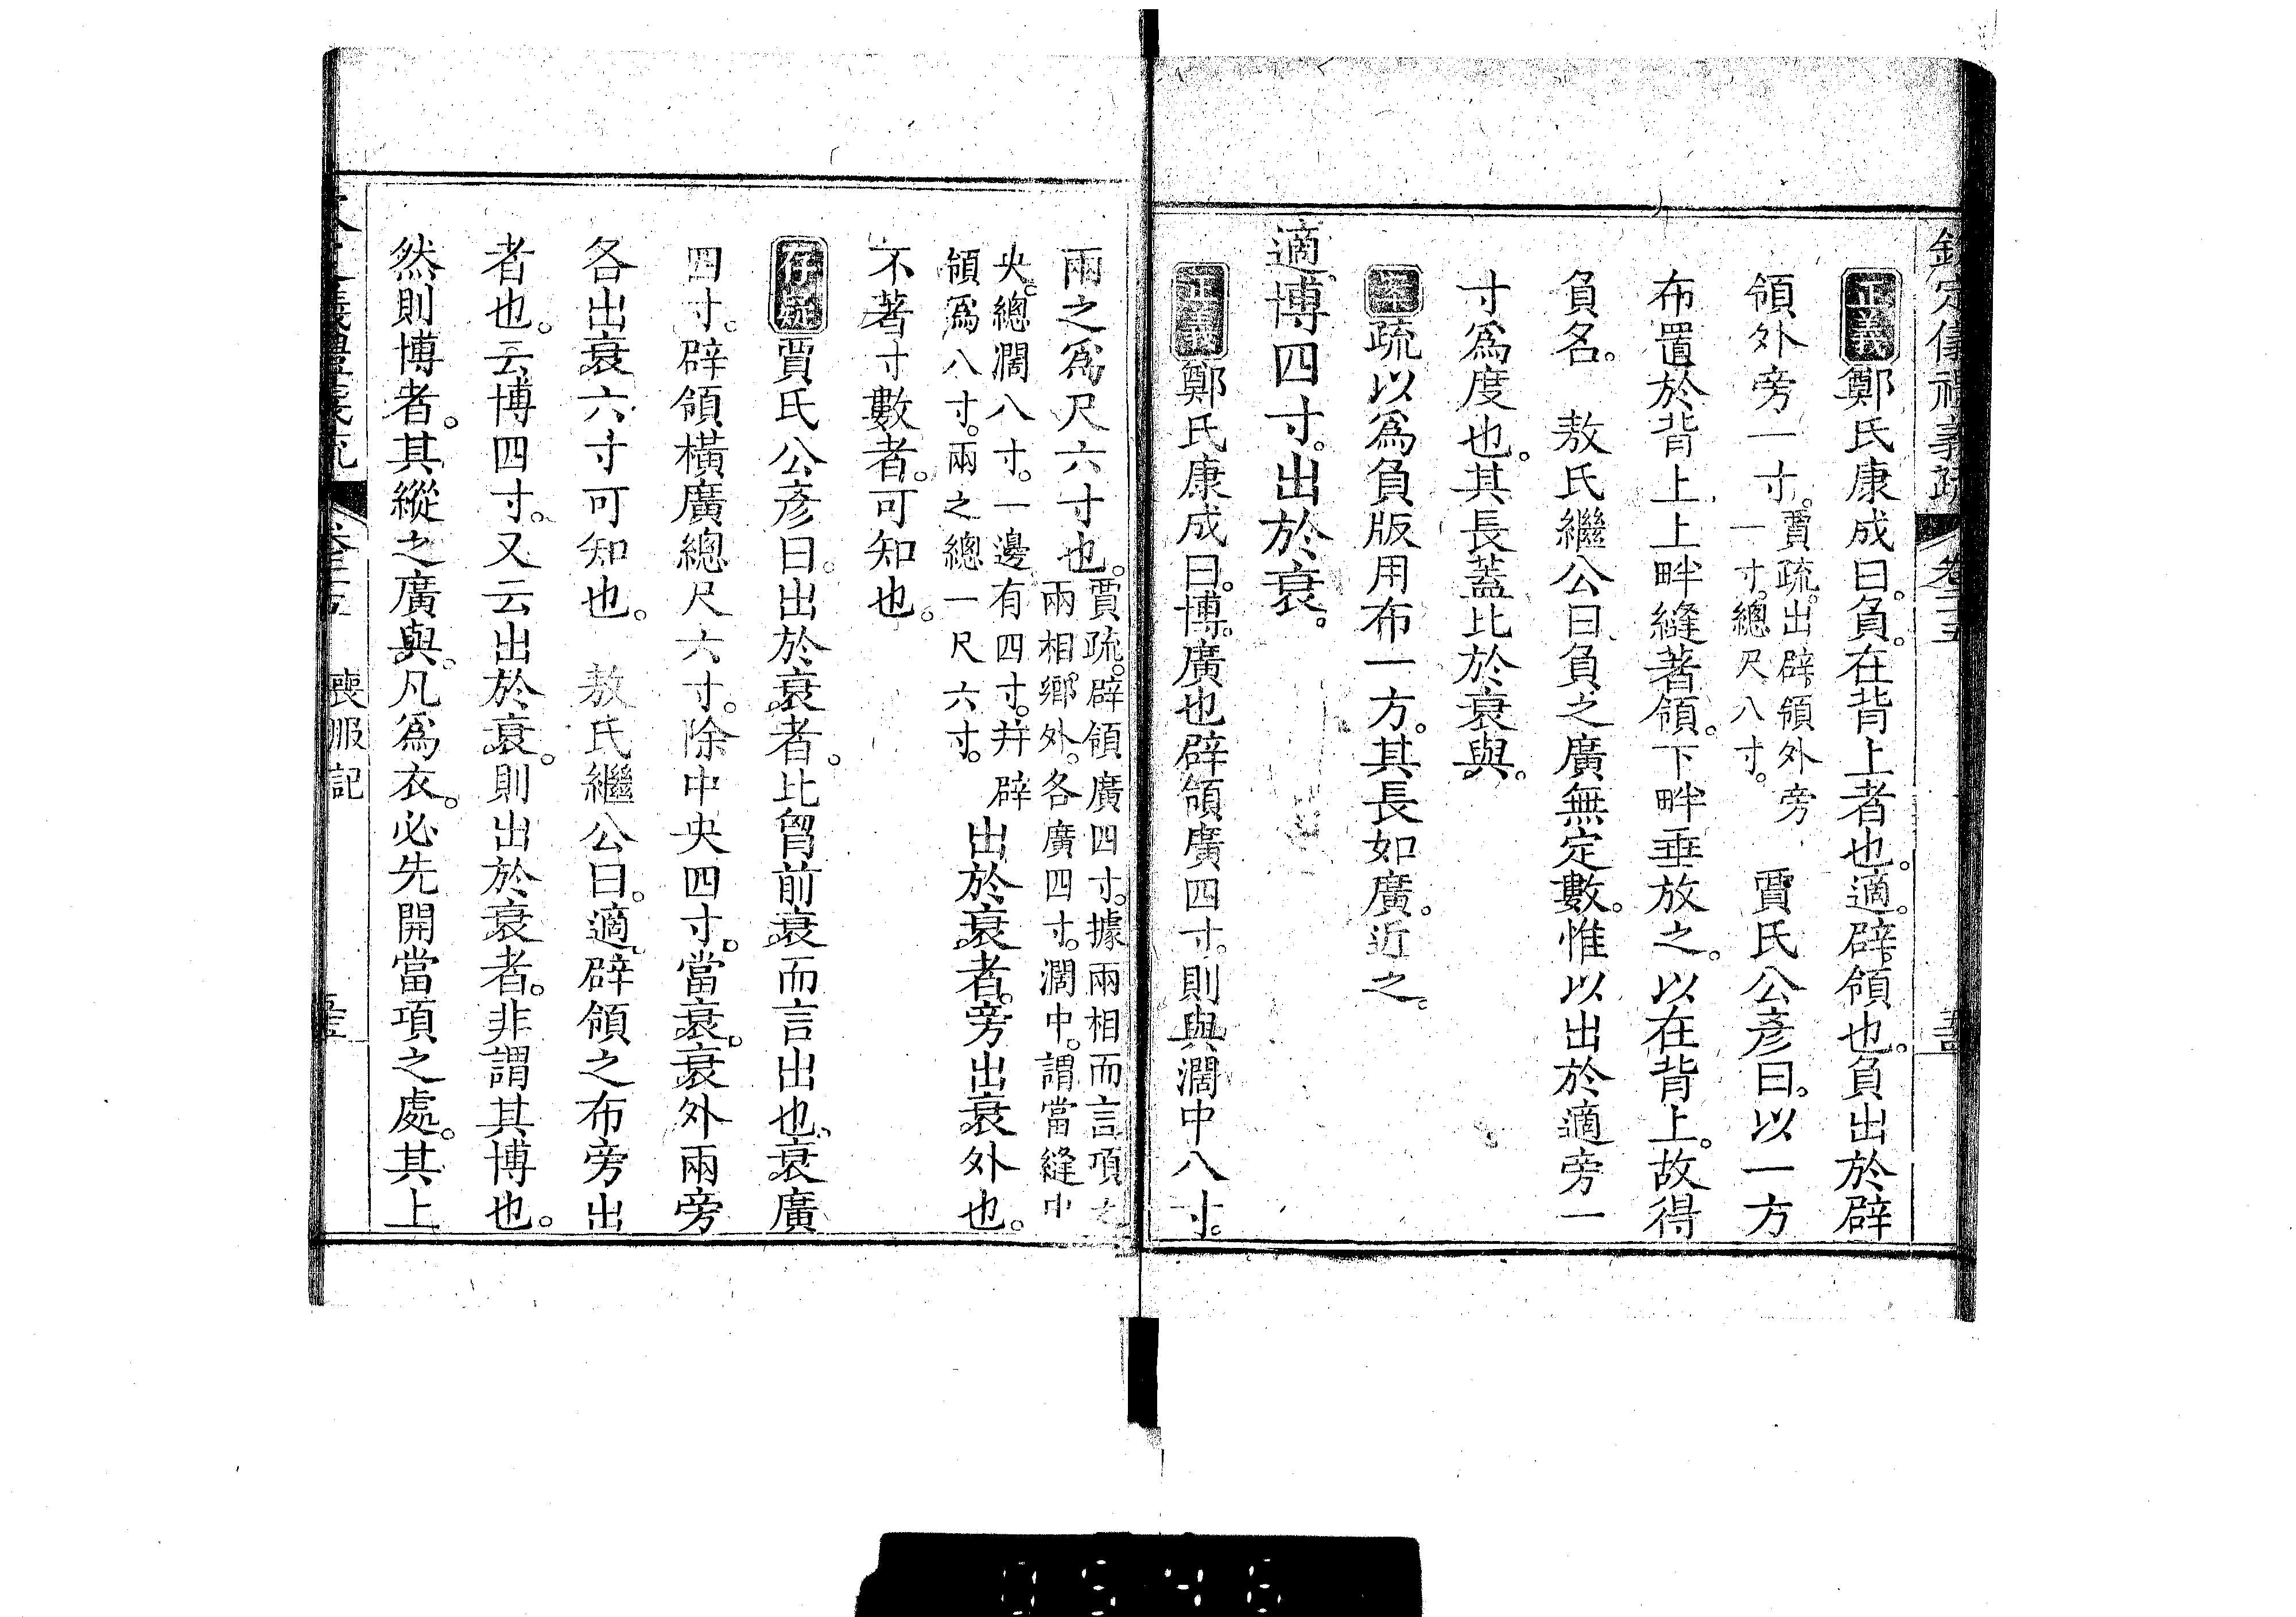 欽定儀禮義疏 卷二十五
正義鄭氏康成曰。負。在背上者也。適。辟領也。負出於辟
領外旁一寸。賈疏。出辟領外旁一寸。總尺八寸。 賈氏公彥曰。以一方
布置於背上。上畔縫著領。下畔垂放之。以在背上。故得
負名。 敖氏繼公曰。負之廣無定數。惟以出於適旁一
寸爲度也。其長蓋比於衰與。
案疏以爲負版用布一方。其長如廣。近之。
適。博四寸。出於衰。
正義鄭氏康成曰。博。廣也。辟領廣四寸。則與濶中八寸。
兩之爲尺六寸也。賈疏。辟領廣四寸。據兩相而言。項之
兩相鄉外。各廣四寸。濶中。謂當縫中
央。總濶八寸。一邊有四寸。并辟
領爲八寸。兩之總一尺六寸。出於衰者。旁出衰外也。
不著寸數者。可知也。
存疑賈氏公彥曰。出於衰者。比胷前衰而言出也。衰廣
四寸。辟領橫廣總尺六寸。除中央四寸。當衰。衰外兩旁
各出衰六寸可知也。 敖氏繼公曰。適。辟領之布旁出
者也。云博四寸。又云出於衰。則出於衰者。非謂其博也。
然則博者。其縱之廣與。凡爲衣。必先開當項之處。其上
喪服記